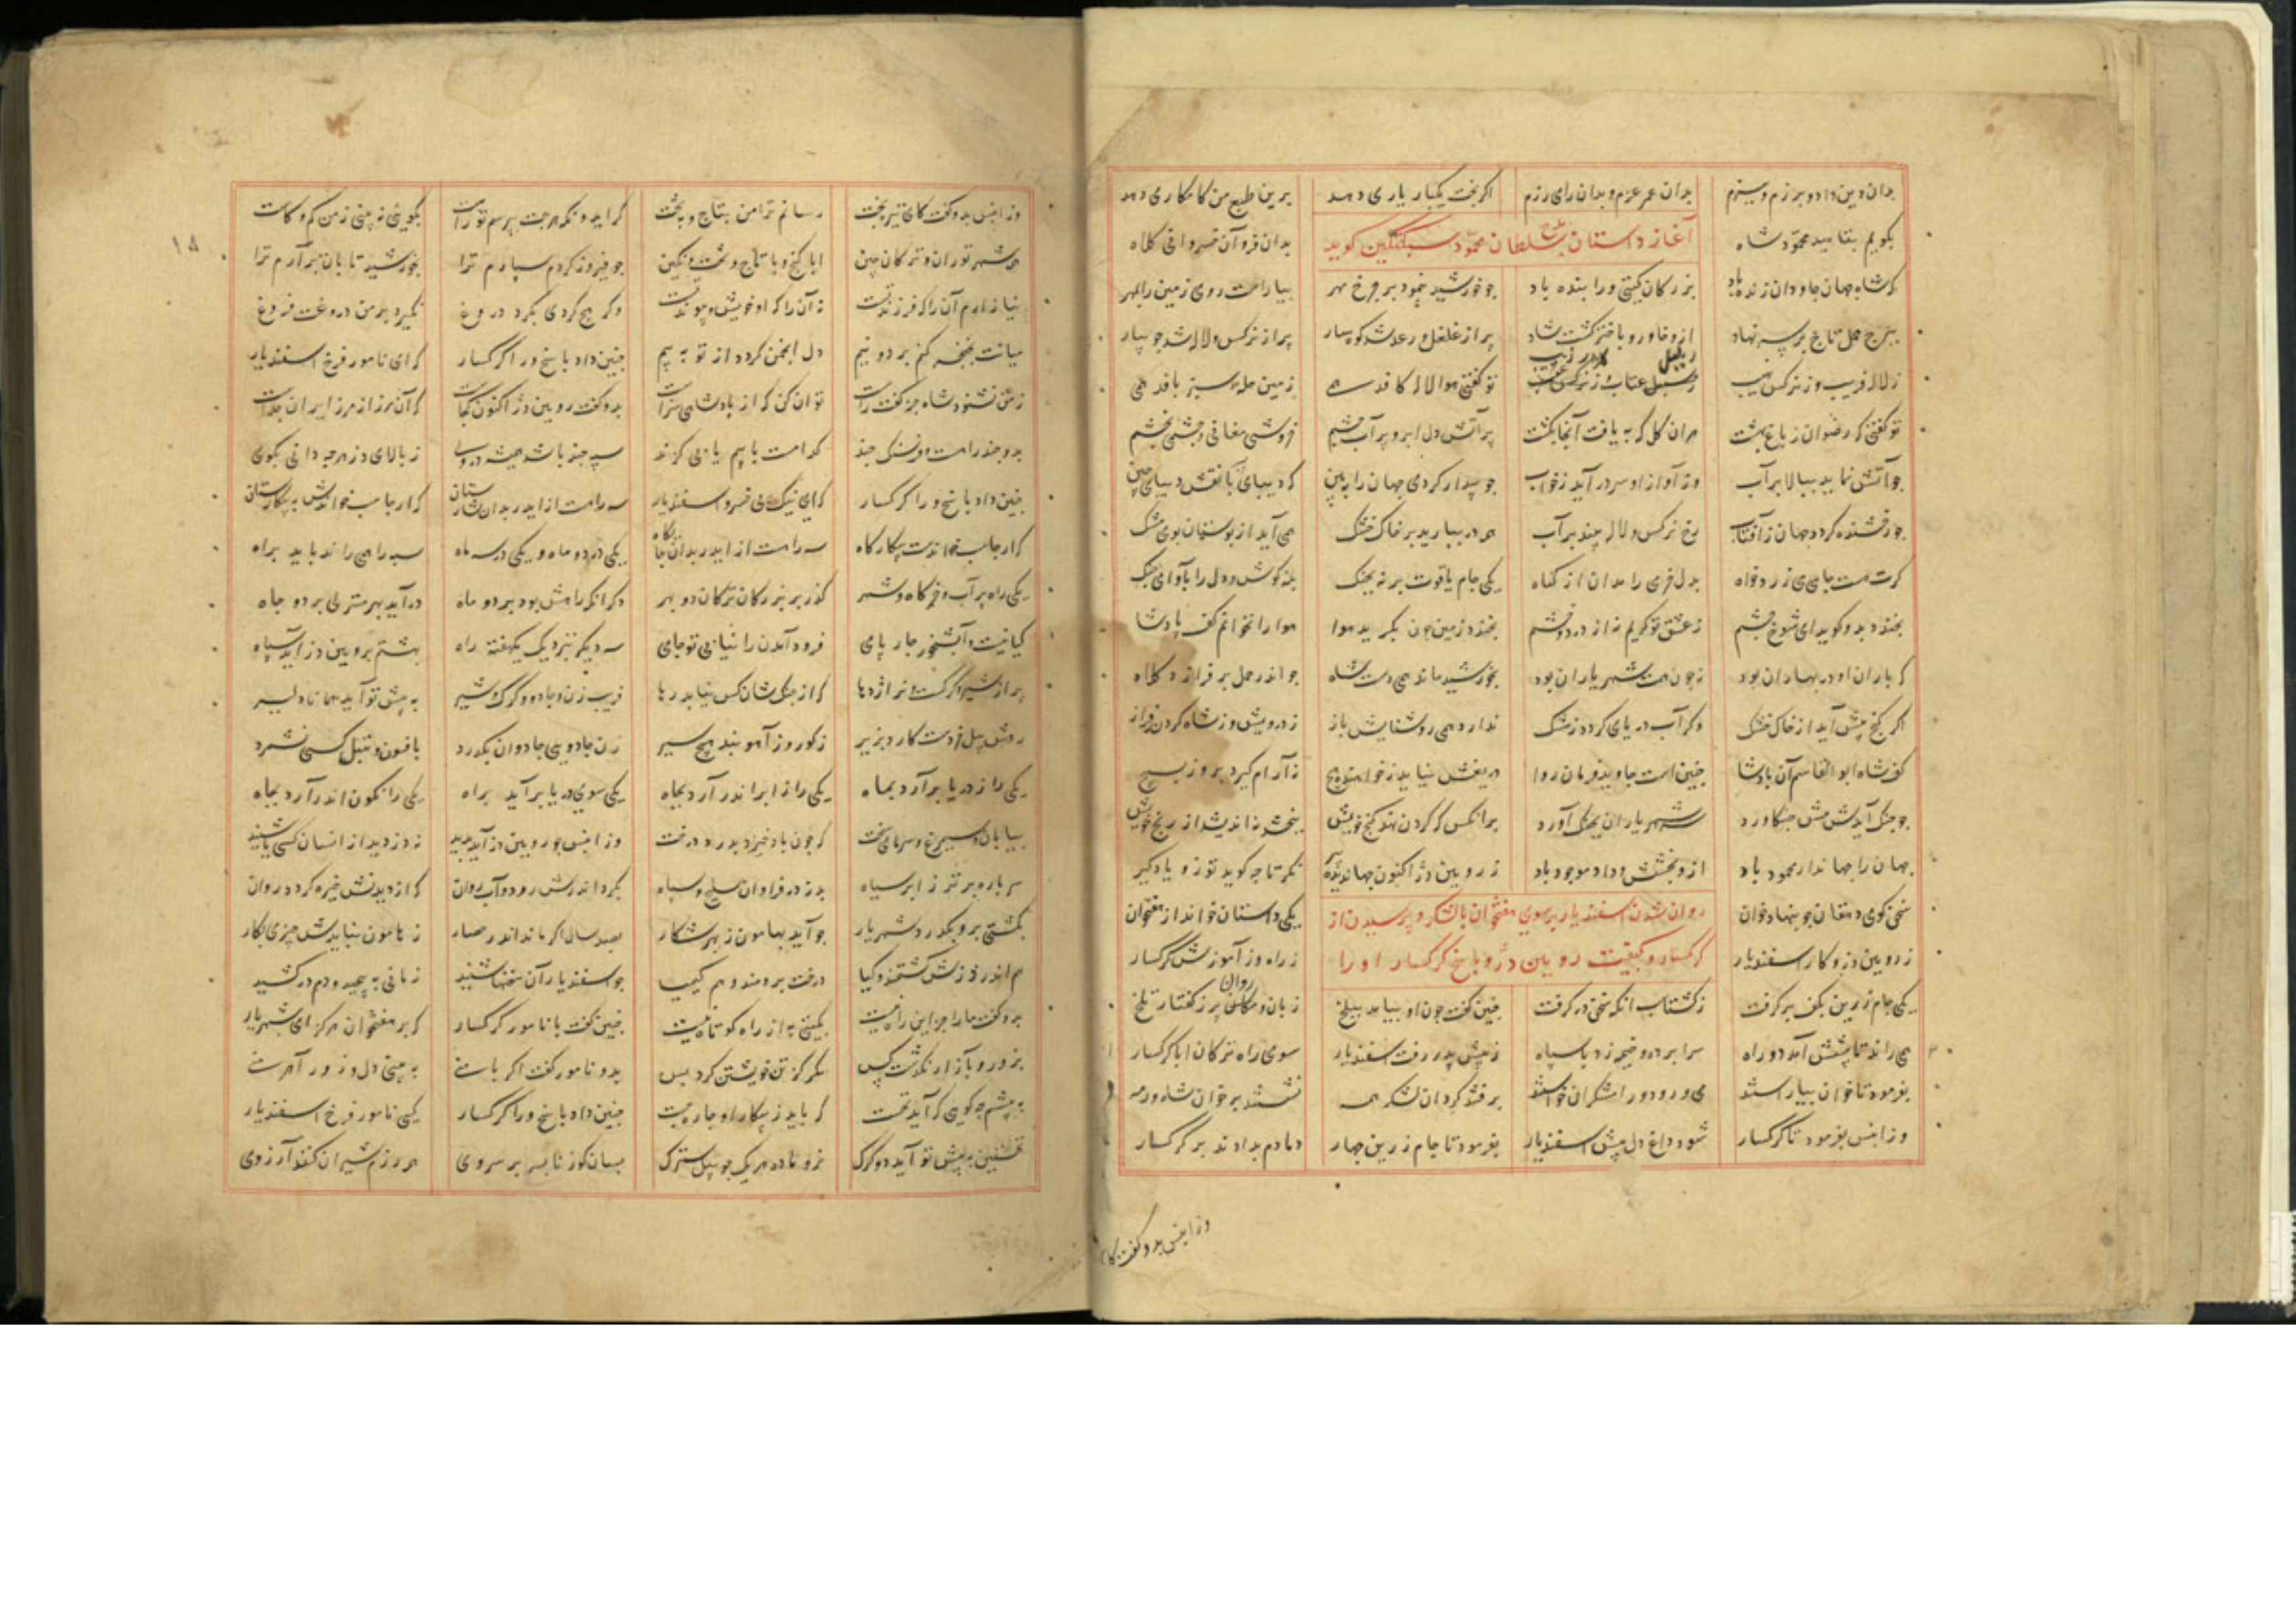 بدان دین و داد و برزم و ببزم بدان عمر عزم و بدان رای رزم اکر بخت یکبار یاری دهد برین طبع من کامکاری دهد
بکویم بتایید محمود شاه بدان فر و آن خسروانی کلاه
آغاز داستان مدح سلطان محمود سبکتکین کوید
که شاه جهان جاودان زنده باد بزرکان کیتی ورا بنده باد جو خورشید بنمود بر جرخ مهر بیاراست روی زمین را بمهر
ببرج حمل تاج بر سر نهاد ازو خاور و باختر کشت شاد پر از غلغل و رعد شد کوهسار پر از نرکس و لاله شد جویبار
ز لاله فریب و ز نرکس نهیب ز سنبل عتاب و ز نرکس تو کفتی هوا لاله کارد همی زمین حله سبز بافد همی
تو کفتی که رضوان ز باغ بهشت هران کل که به یافت آنجا بکشت پر آتش دل ابر و پر آب جشم خروش مغانی و جشنی بخشم
جو آتش نماید ببالا بر آب وز آواز او سر درآید ز خواب جو بیدار کردی جهان را ببین که دیبای با نقش دیبای چین
جو رخشنده کردد جهان ز آفتاب رخ نرکس و لاله بیند بر آب همی در ببارید بر خاک خشک همی آید از بوستان بوی مشک
کرت هست جامی می زرد خواه بدل خرمی را مدان از کناه یکی جام یاقوت بر نه بجنک بنه کوش و دل را بآوای جنک
بخندد بدو کوید ای شوخ جشم ز عشق تو کریم نه از درد و خشم بخندد زمین جون بکرید هوا هوا را نخوانم کف پادشا
که باران او در بهاران بود نه جون همت شهریاران بود بخورشید ماند همی دست شاه جو اندر حمل برفرازد کلاه
اکر کنج پیش آید از خاک خشک وکر آب دریای کردد ز مشک ندارد همی روشنایش باز ز درویش وز شاه کردن فراز
کف شاه ابو القاسم آن پادشا جنین است جاوید فرمان روا دریغش نیاید ز خواهنده هیچ نه آرام کیرد بروز بسیج
جو جنک آیدش پیش جنک آورد سر شهریاران بجنک آورد برانکس که کردن نهد کنج خویش ببخشد نه اندیشد از رنج خویش
جهان را جهاندار محمود باد ازو بخشش و داد موجود باد ز رویین دژ اکنون جهاندیده پیر نکر تا چه کوید تو زو یاد کیر
سخن کوی دهقان جو بنهاد خوان یکی داستان خواند از هفتخوان
روان شدن اسفندیار بر سوی هفتخوان با لشکر و پرسیدن از
ز رویین دژ و کار اسفندیار ز راه و ز آموزش کرکسار
کرکسار و کیفیت رویین دژ و پاسخ کرکسار او را
یکی جام زرین بکف بر کرفت ز کشتاسب انکه سخن در کرفت جنین کفت جون او بیامد ببلخ زبان و روان پر ز کفتار تلخ
همی راند تا پیشش آمد دو راه سراپرده و خیمه زد با سپاه ز پیش پدر رفت اسفندیار سوی راه ترکان ابا کرکسار
بفرمود تا خوان بیاراستند می و رود و رامشکران خواستند برفتند کردان لشکر همه نشستند بر خوان شاه رمه
وزانپس بفرمود تا کرکسار شود داغ دل پیش اسفندیار بفرمود تا جام زرین جهار دمادم بدادند بر کرکسار
وزانپس بدو کفت کای

۱۵
وزانپس بدو کفت کای تیره بخت رسانم ترا من بتاج و بتخت کر ایدونکه هرجت بپرسم تو راست بکویی نه بینی ز من کم و کاست
همه شهر توران و ترکان چین ابا کنج و با تاج و تخت و نکین جو فیروز کردم سپارم ترا بخورشید تابان برآرم ترا
نیازارم آن را که فرزند تست نه آن را که او خویش و پیوند تست وکر هیچ کردی بکرد دروغ نکیرد بر من دروغت فروغ
میانت بخنجر کنم بر دو نیم دل انجمن کردد از تو به بیم جنین داد پاسخ ورا کرکسار که ای نامور فرخ اسفندیار
ز من نشنود شاه جز کفت راست تو آن کن که از پادشاهی سزاست بدو کفت رویین دژ اکنون کجاست که آن مرز از مرز ایران جداست
بدو جند راهست و فرسنک جند کدامست با بیم یا بی کزند سپه جند باشد همیشه دروی ز بالای دز هرجه دانی بکوی
جنین داد پاسخ ورا کرکسار که ای نیک پی خسرو اسفندیار سه راهست از ایدر بدان شارستان که ارجاسب خواندش به پیکارستان
که ارجاسب خواندست پیکار کاه سه راهست از ایدر بدان جایکاه یکی در دو ماه و یکی در سه ماه سپه را همی راند باید براه
یکی راه پر آب و خرکاه و شهر کذر بر بزرکان ترکان دو بهر دکر آنکه راهش بود بر دو ماه درآید بهر منزلی بر دو جاه
کیا نیست و آبشخور چارپای فرود آمدن را نیابی تو جای سه دیکر بنزدیک یکهفته راه بهشتم برویین دز آید سپاه
پر از شیر و کرکست و نر اژدها که از جنکشان کس نیابد رها فریب زن جادو و کرک و شیر به پیش تو آید همانا دلیر
زن جادویی جادوان بکذرد بافسون و تنبل کسی نشمرد
یکی را ز دریا برآرد بماه یکی را ز ابر اندر آرد بجاه یکی سوی دریا برآید براه یکی را نکون اندر آرد بجاه
بیابان و سیمرغ و سرمای سخت که جون باد خیزد بدرد درخت وزانپس جو رویین دز آید پدید نه دز دید از انسان کسی یا شنید
سر باره برتر ز ابر سیاه بدز در فراوان سلیح و سپاه بکرد اندرش رود و آب روان که از دیدنش خیره کردد روان
بکشتی برو بکذرد شهریار جو آید بهامون ز بهر شکار بصد سال اکر ماند اندر حصار ز هامون نیایدش چیزی بکار
هم اندر دزش کشتمند و کیا درخت برومند و هم کیمیا جو اسفندیار آن سخنها شنید زمانی به پیچید و دم درکشید
بدو کفت ما را جز این راه نیست بکیتی به از راه کوتاه نیست جنین کفت با نامور کرکسار که بر هفتخوان هرکز ای شهریار
بزور و بآزار نکذشت کس مکر کز تن خویشتن کرد بس بدو نامور کفت اکر با منی به بینی دل و زور آهرمنی
به پیشم چه کویی که آید نخست که باید ز پیکار او چاره جست جنین داد پاسخ ورا کرکسار که ای نامور فرخ اسفندیار
نخستین به پیش تو آید دو کرک نر و ماده هر یک جو پیل سترک بسان کوزنان بسر بر سروی همه رزم شیران کنند آرزوی